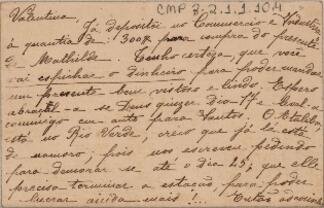 CMP 3-2-1-1 104
Valentina,
Já depositei no Commercio e
a quantia de 300$ para compra do presente
de Mathilde. Tenho certeza, que você
vai o dinheiro para poder mandar
um presente bem vistoso e lindo. Espero
abraçal-a se Deus quizer dia 17 e
commigo em auto para Santos. O
está no Rio Verde, creio que já lá está
de namoro, pois nos escreveu pedindo
para demorar se até o dia 25, que elle
precisa terminar a estação, para poder
lucrar ainda mais!...